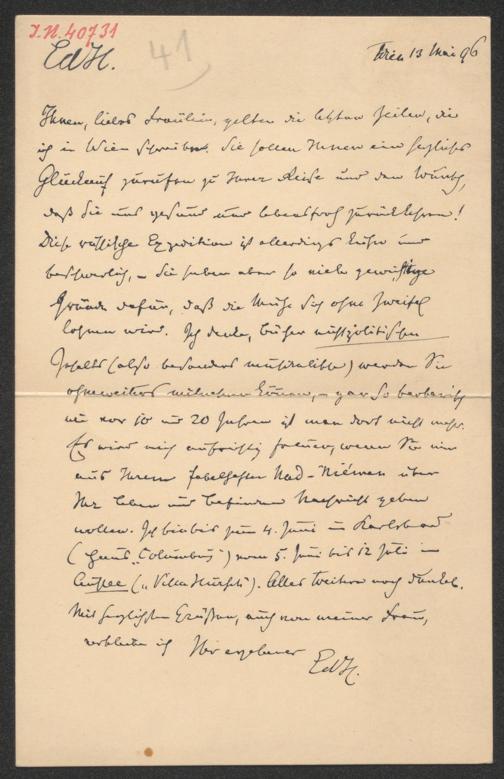 J.N. 40731
EdH.
41
Wien 13 Mai 96
Ihnen, liebes Fräulein, gelten die letzten Zeilen, die
ich in Wien schreibe. Sie sollen Ihnen ein herzliches
Glückauf zurufen zu Ihrer Reise und den Wunsch,
daß Sie uns gesund und lebensfroh zurückkehren!
Diese russische Expedition ist allerdings kühn und
beschwerlich, – Sie haben aber so viele gewichtige
Gründe dafür, daß die Mühe sich ohne Zweifel
lohnen wird. Ich denke, Bücher nichtpolitischen
Inhalts (also besonders musikalische) werden Sie
ohneweiters mitnehmen können, – gar so barbarisch
wie vor 10 und 20 Jahren ist man dort nicht mehr.
Es wird mich aufrichtig freuen, wenn Sie mir
aus Ihrem fabelhaften Nad-Niémen über
Ihr Leben und Befinden Nachricht geben
wollen. Ich bin bis zum 4. Juni in Karlsbad
(Haus „Columbus") vom 5. Juni bis 12 Juli in
Aussee („Villa "). Alles Weitere noch dunkel.
Mit herzlichsten Grüßen, auch von meiner Frau,
verbleibe ich Ihr ergebener
EdH.